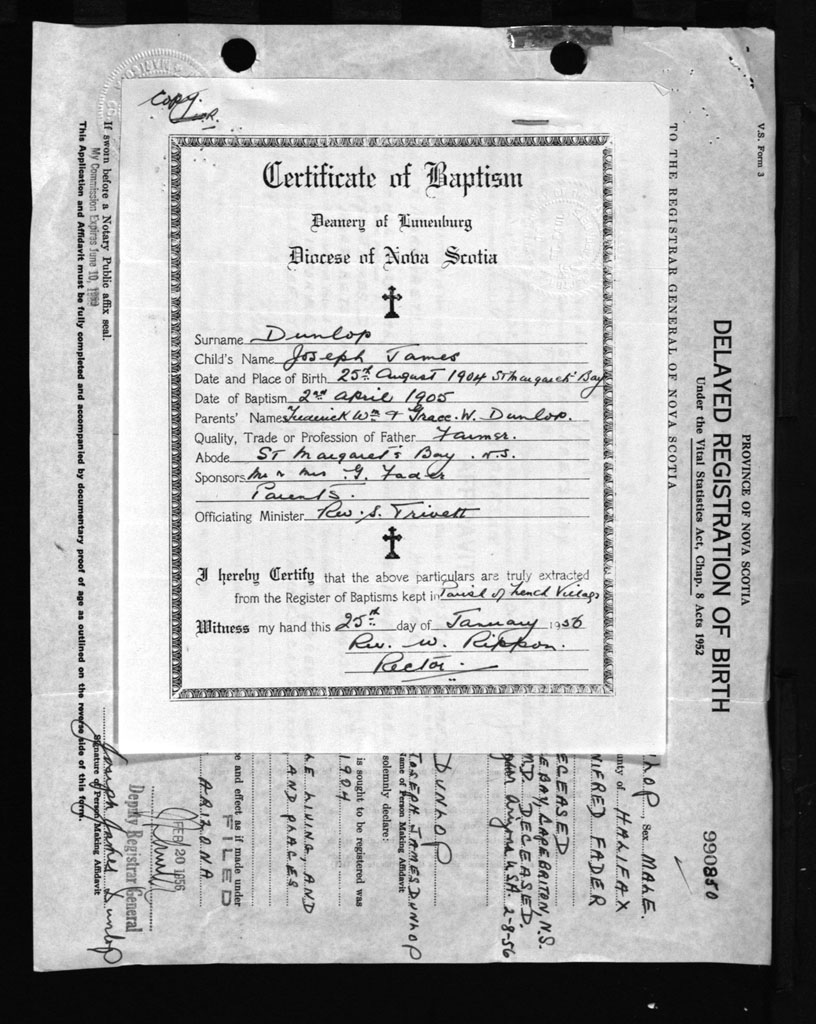 Copy.
Certificate of Baptism
Deanery of Lunenburg
Diocese of Nova Scotia
Surname Dunlop
Child's Name Joseph James
Date and Place of Birth 25th August 1904 St Margaret' Bay
Date of Baptism 2nd April 1905
Parents' Names Frederick Wm & Grace. W. Dunlop.
Quality, Trade or Profession of Father Farmer.
Abode St Margaret's Bay. N.S.
Sponsors Mr & Mrs G. Fader
Parents.
Officiating Minister Rev. S. Trivett
I hereby Certify that the above particulars are truly extracted
from the Register of Baptisms kept in Parish of French Village
Witness my hand this 25th day of January 1956
Rev. W. Rippon.
Rector.
V.S. Form 3
PROVINCE OF NOVA SCOTIA
DELAYED REGISTRATION OF BIRTH
Under the Vital Statistics Act, Chap. 8 Acts 1952
990850
TO THE REGISTRAR GENERAL OF NOVA SCOTIA
Sex MALE.
of HALIFAX
NIFRED FADER
ECEASED
E BAY, CAPE BRITON, N.S.
DECEASED.
U.S.A. 2-8-56
DUNLOP
JOSEPH JAMES DUNLOP
Name of Person Making Affidavit
solemnly declare:
is sought to be registered was
1904
LIVING, AND
AND PLACES
e and effect as if made under
FILED
ARIZONA
FEB 20 1956
Deputy Registrar General
Joseph James Dunlop
Signature of Person Making Affidavit
If sworn before a Notary Public affix seal.
My Commission Expires June 10, 1959
This Application and Affidavit must be fully completed and accompanied by documentary proof of age as outlined on the reverse side of this form.